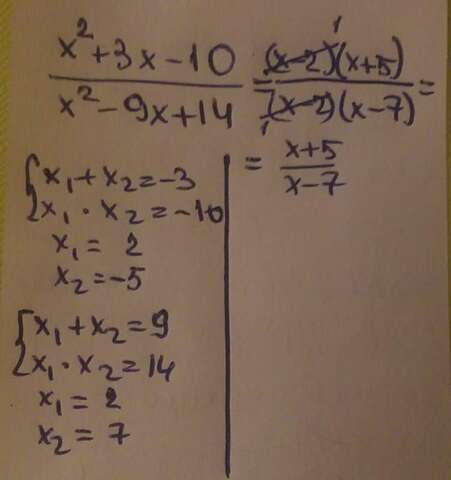 x² + 3x - 10 / x² - 9x + 14 = (x-2)(x+5) / (x-2)(x-7) =
= x+5 / x-7
x₁ + x₂ = -3
x₁ · x₂ = -10
x₁ = 2
x₂ = -5
x₁ + x₂ = 9
x₁ · x₂ = 14
x₁ = 2
x₂ = 7